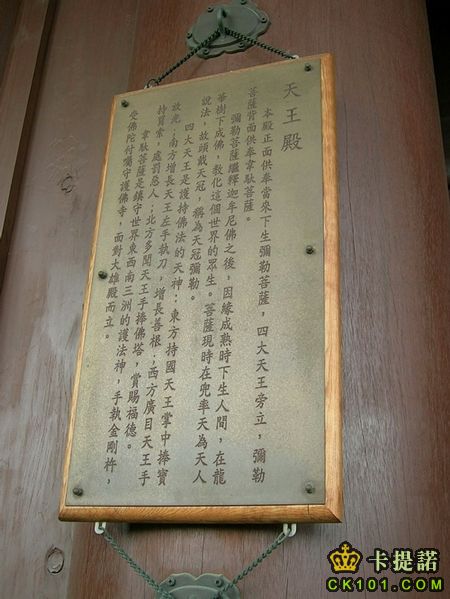 天王殿
本殿正面供奉當來下生彌勒菩薩，四大天王旁立，彌勒
菩薩背面供奉韋馱菩薩。
彌勒菩薩繼釋迦牟尼佛之後，因緣成熟時下生人間，在龍
華樹下成佛，教化這個世界的眾生。菩薩現時在兜率天為天人
說法，故頭戴天冠，稱為天冠彌勒。
四大天王是護持佛法的天神：東方持國天王掌中捧寶
放光；南方增長天王左手執刀，增長善根；西方廣目天王手
持罥索，處罰惡人；北方多聞天王手捧佛塔，賞賜福德。
韋馱菩薩是鎮守世界東西南三洲的護法神，手執金剛杵，
受佛陀付囑守護佛寺，面對大雄殿而立。
卡提諾
CK101.COM